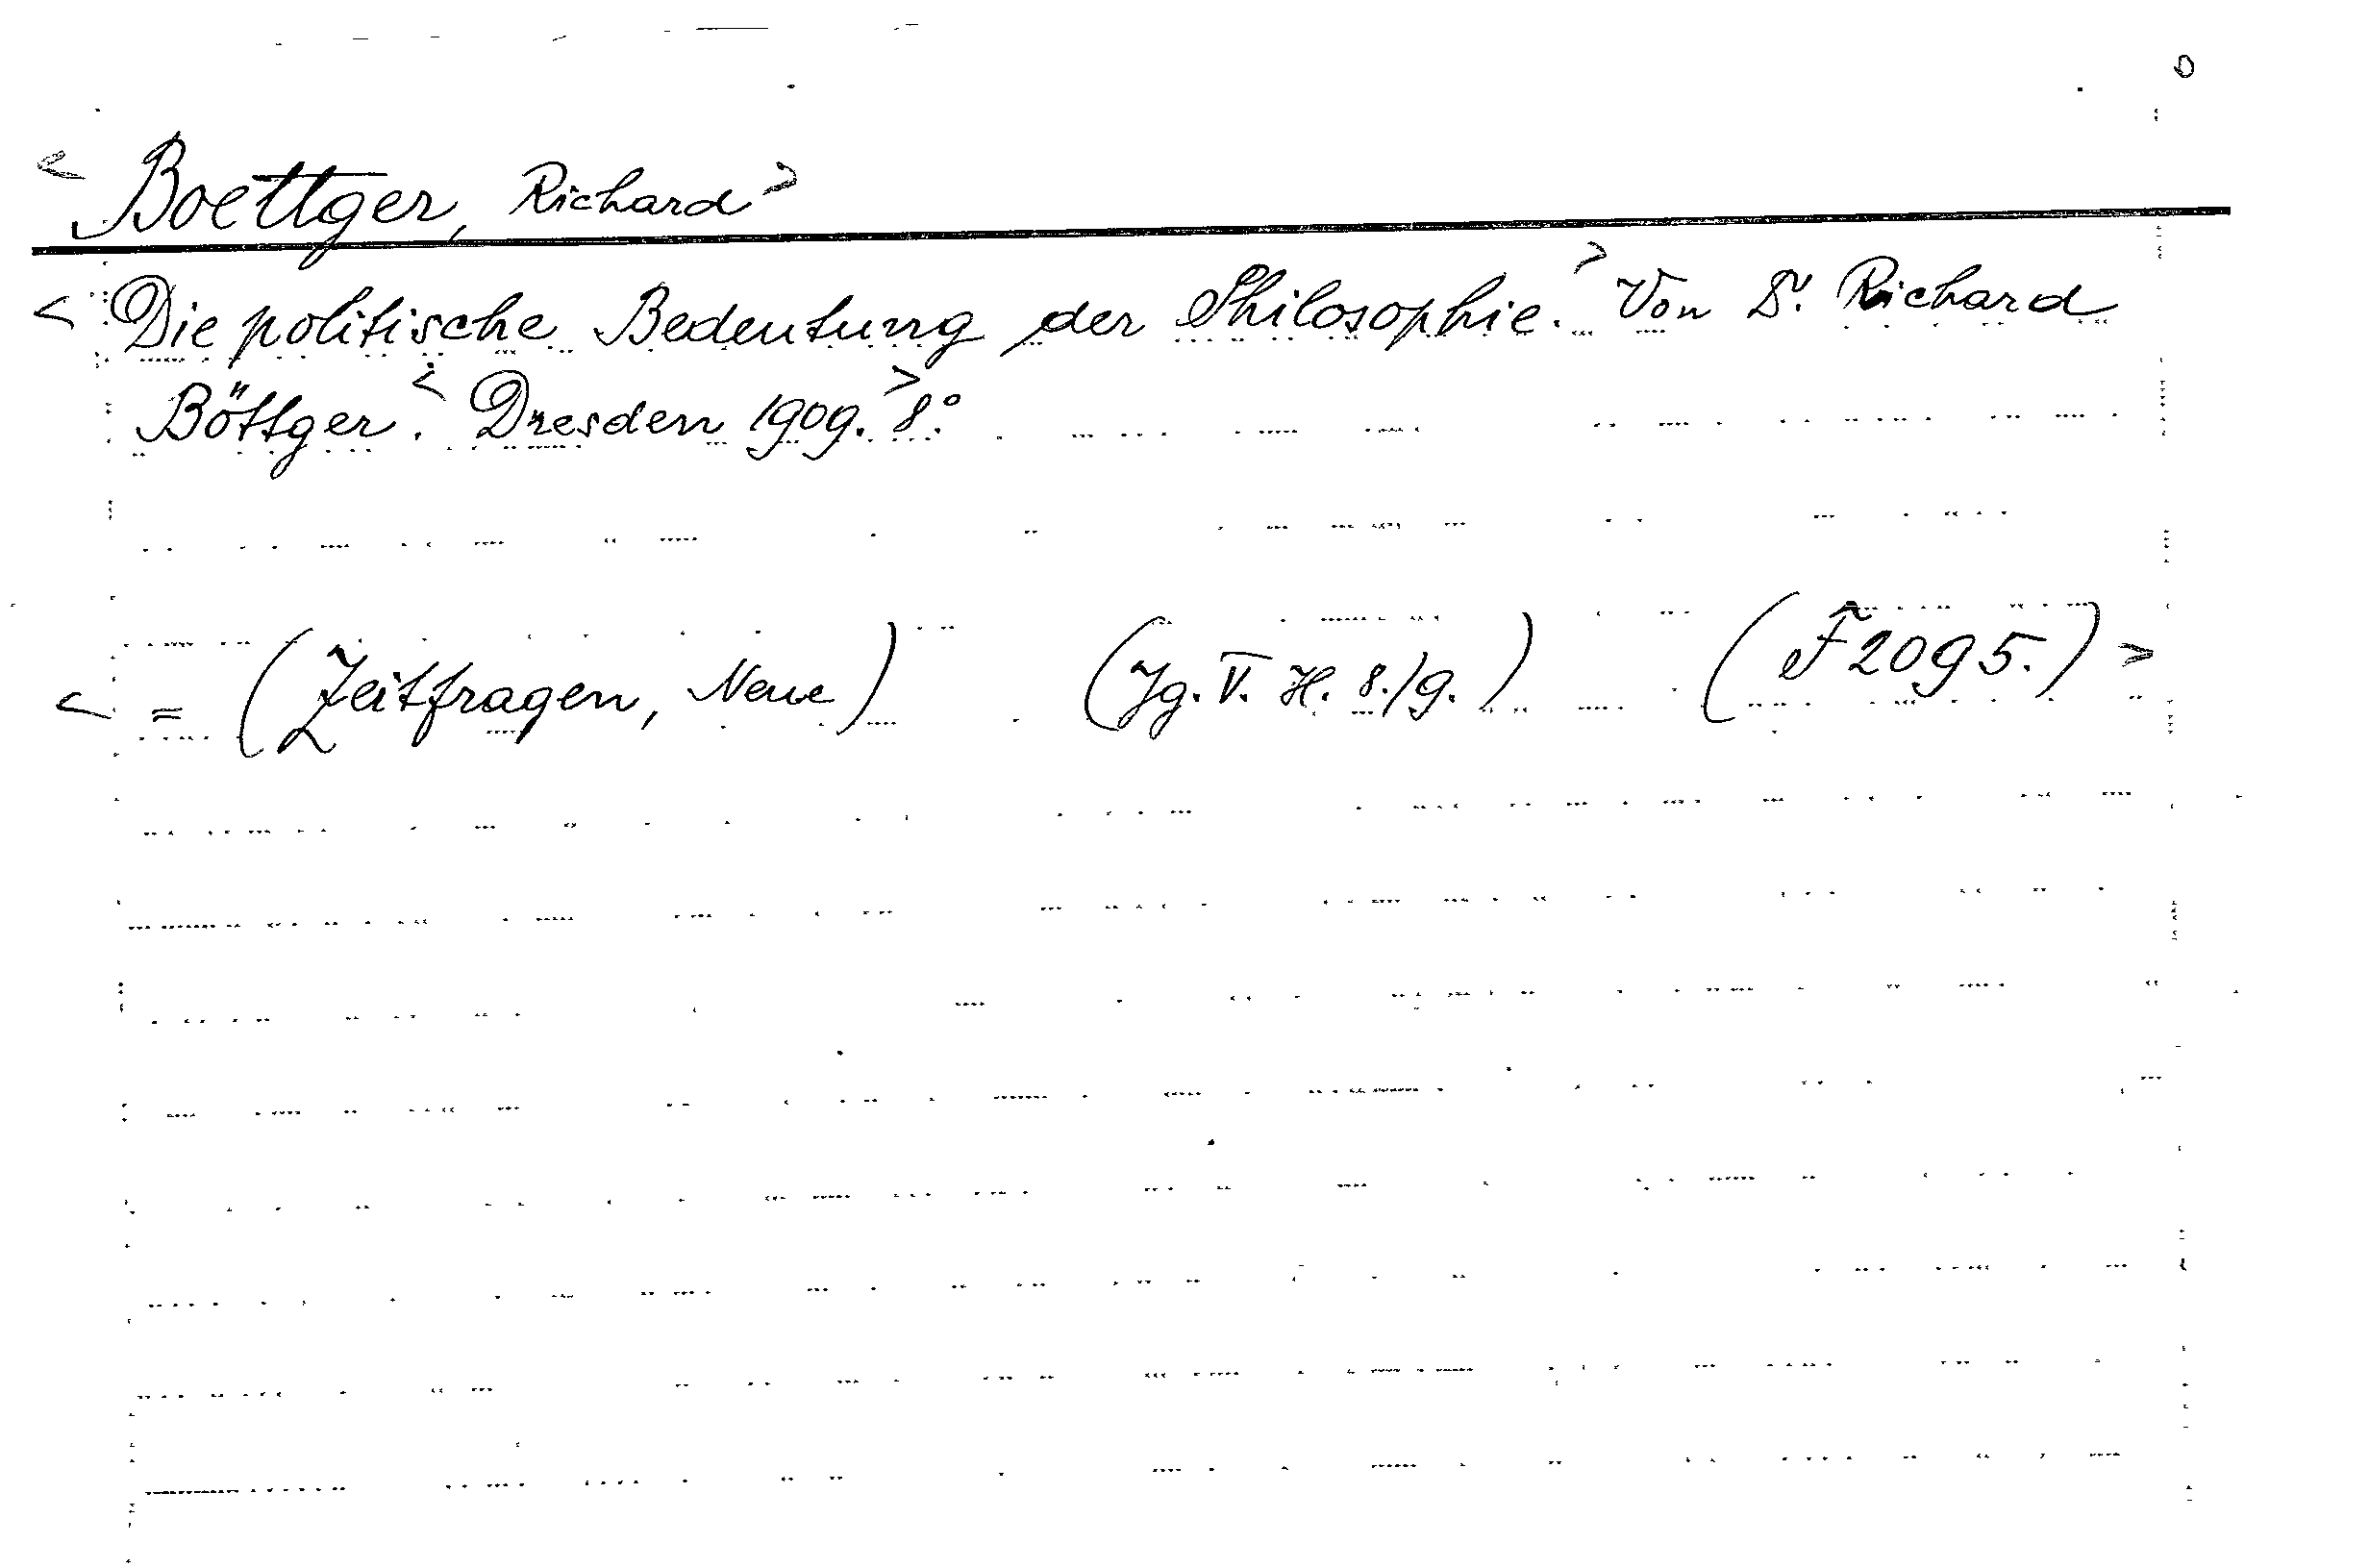 < Boettger, Richard >
< Die politische Bedeutung der Philosophie. > Von Dr. Richard
Böttger. < Dresden 1909. > 8°.
< = (Zeitfragen, Neue) (Jg. V. H. 8./9.) (F 2095.) >